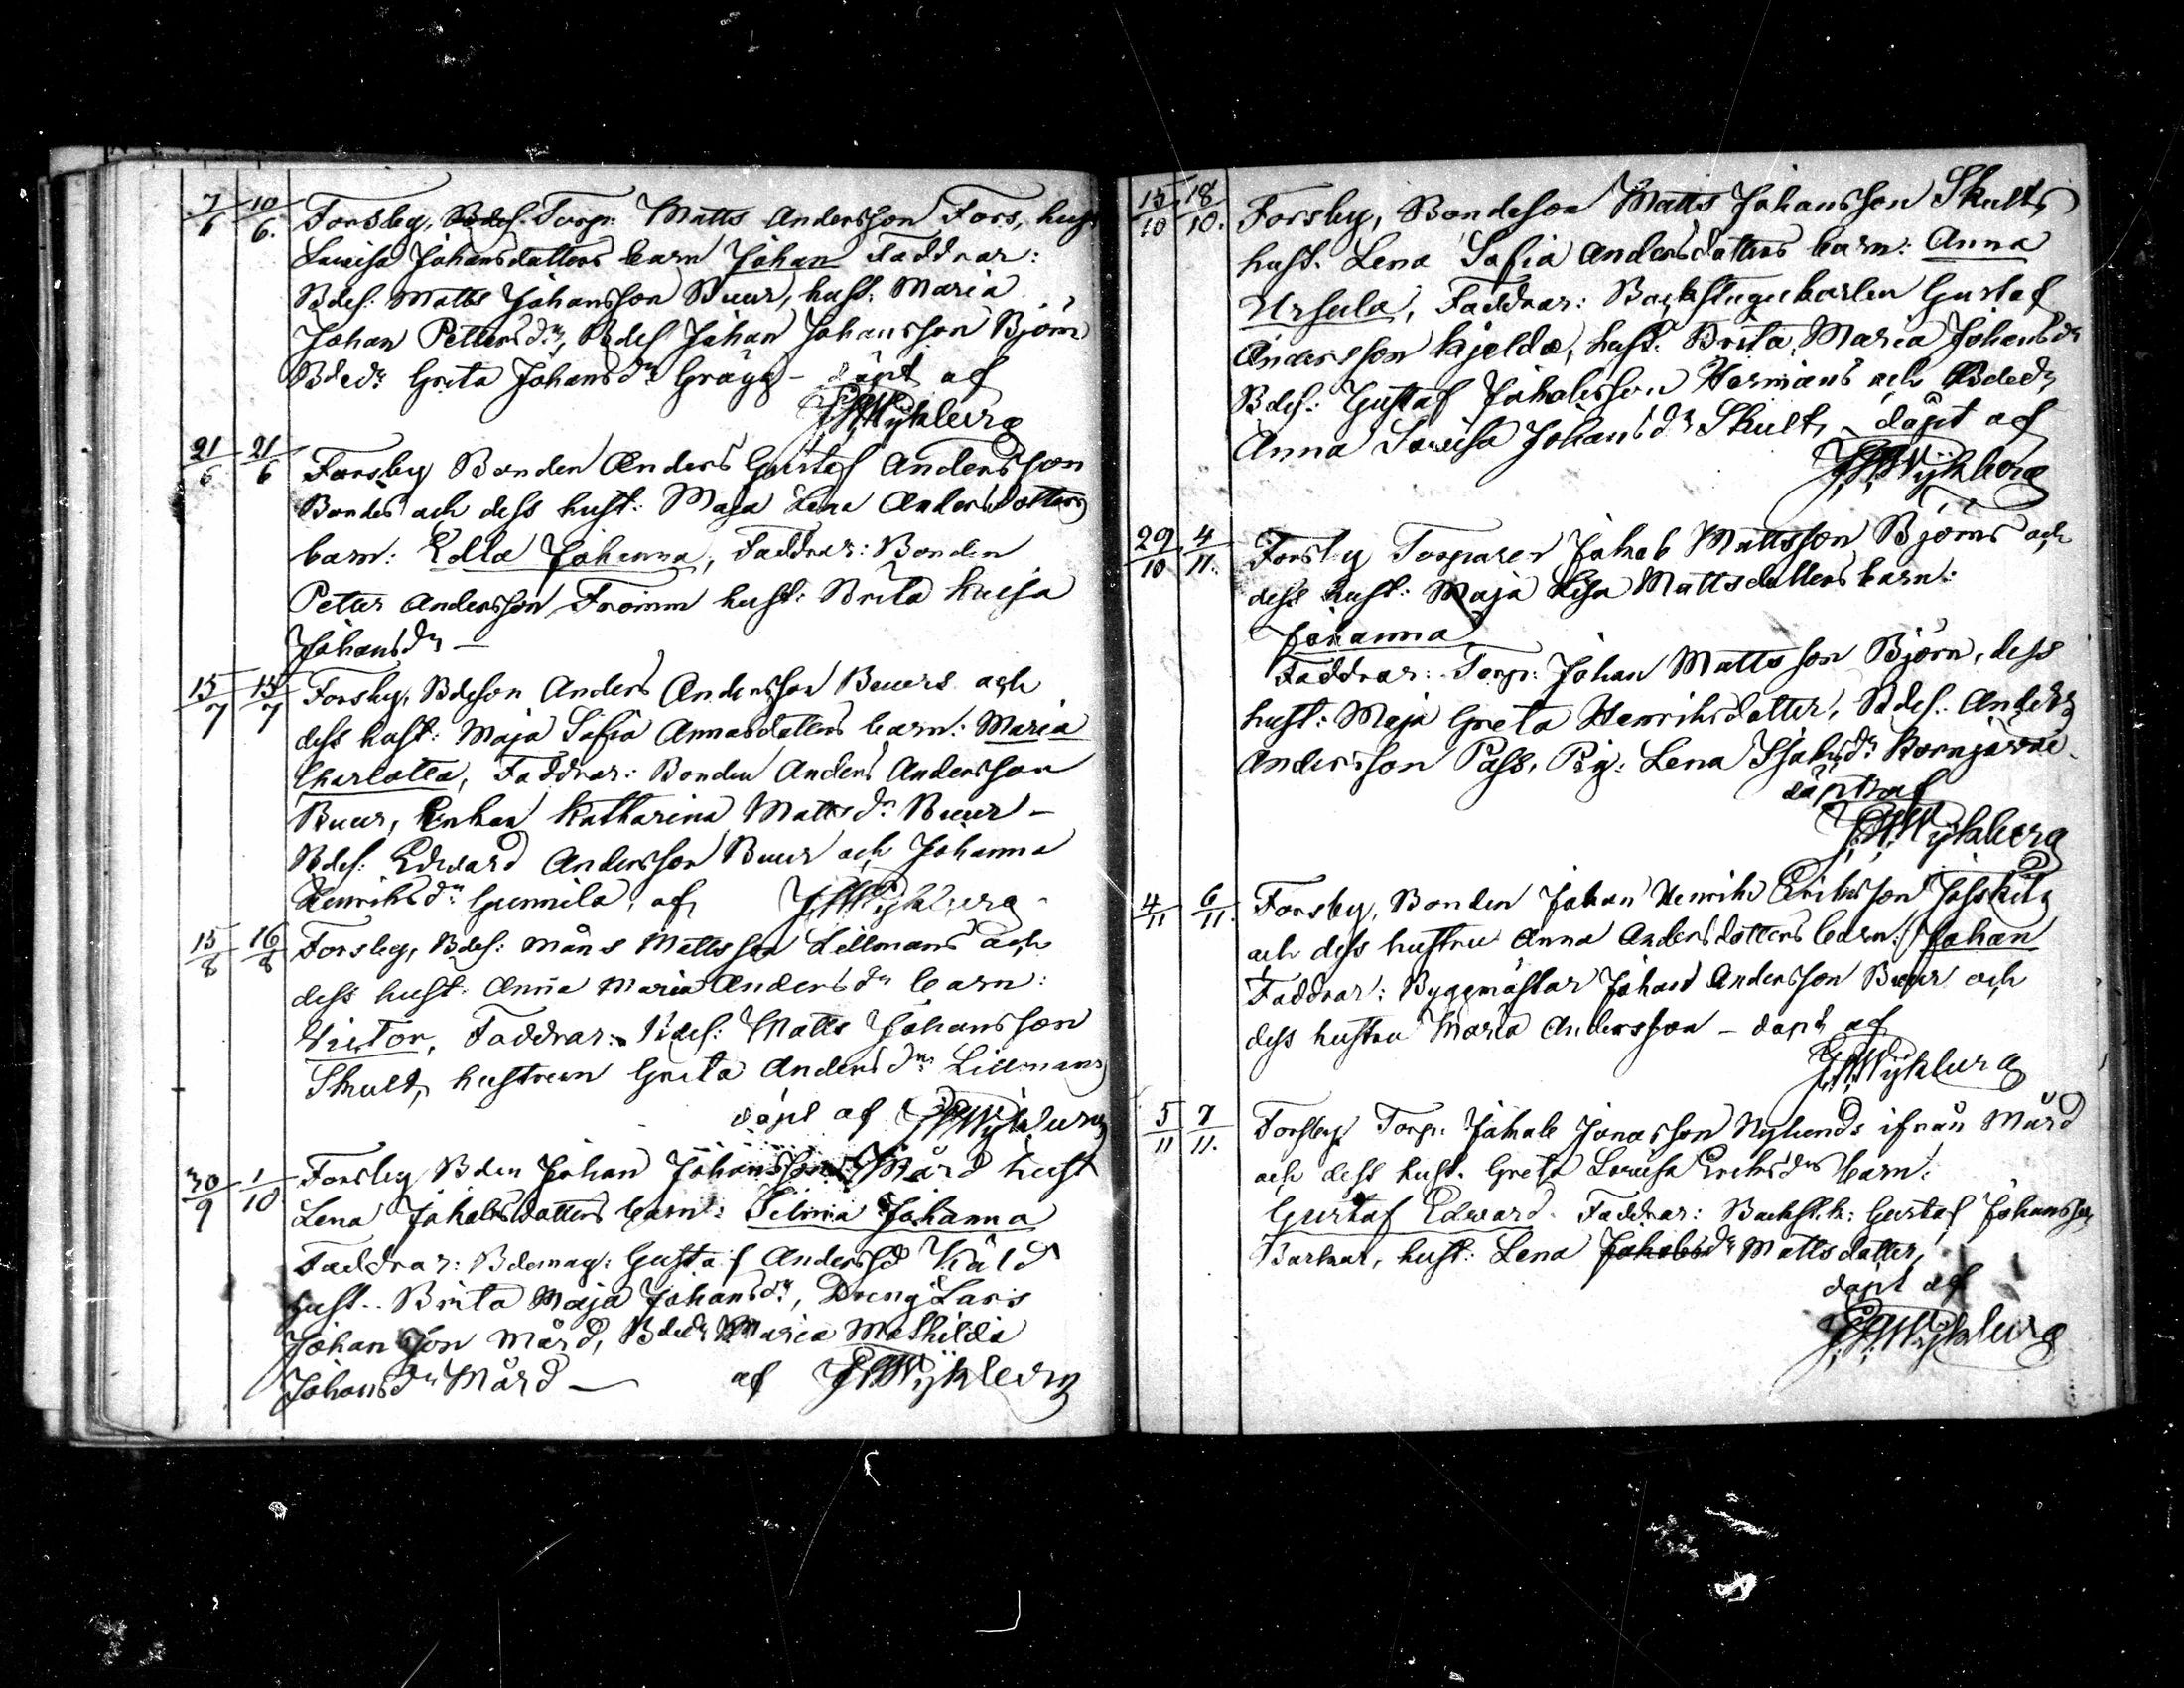 7/6 10/6. Forsby, Bdes. Torp: Matts Andersson Fors, hust
Lovisa Johansdotters barn Johan Faddrar:
Bdes: Matts Johansson Buur, hust. Maria
Johan Petters dr, Bdes Johan Johansson Björn
Bdedr Greta Johans dr Grägg - döpt af
J.H. Wijkberg
21/6 21/6 Forsby Bonden Anders Gustaf Andersson
Bondes och dess hust: Maja Lena Andersdotters
barn: Edla Johanna, Faddrar: Bonden
Petter Andersson Fromm hust: Brita Kaisa
Johans dr —
15/7 15/7 Forsby, Bdeson Anders Andersson Buurs och
dess hust: Maja Sofia Annasdotters barn: Maria
Charlotta, Faddrar: Bonden Anders Andersson
Buur, Enkan Katharina Matts dr Buur -
Bdes: Edward Andersson Buur och Johanna
Henriks dr Gunnila, af J.H. Wijkberg
15/8 16/8 Forsby, Bdes: Måns Mattsson Lillmans och
dess hust. Anna Maria Anders dr barn:
Victor, Faddrar: Bdes: Matts Johansson
Skult, hustrun Greta Anders dr Lillmans
döpt af J.H. Wijkberg
30/9 1/10 Forsby Bden Johan Johansson Mård hust
Lena Jakobsdotters barn: Selma Johanna
Faddrar: Bdemag: Gustaf Anderss Käld
hust.. Brita Maja Johans dr, Dreng Lars
Johansson Mård, Bdedr Maria Mathilda
Johans dr Mård — af J.H. Wijkberg
15/10 18/10. Forsby, Bondeson Matts Johansson Skults
hust. Lena Sofia Andersdotters barn: Anna
Ursula, Faddrar: Backstugukarlen Gustaf
Andersson Kjelda, hust. Brita Maria Johans dr
Bdes: Gustaf Jakobsson Hermans och Bdedr
Anna Lovisa Johans dr Skult, - döpt af
J.H. Wijkberg
29/10 4/11. Forsby Torparen Jakob Mattsson Björns och
dess hust: Maja Lisa Mattsdotters barn:
Johanna
Faddrar: Torp: Johan Mattsson Björn, dess
hust: Maja Greta Henriksdotter, Bdes: Anders
Andersson Pass, Pig: Lena Isaks dr Kornjärve
döpt af
J.H. Wijkberg
4/11 6/11. Forsby, Bonden Johan Henrik Eriksson
och dess hustru Anna Andersdotters barn: Johan
Faddrar: Byggmästar Johan Andersson Buur och
dess hustru Maria Andersson - döpt af
J.H. Wijkberg
5/11 7/11. Forsby Torp: Jakob Jonasson Nylunds ifrån Mård
och dess hust. Greta Lovisa Eriks drs barn:
Gustaf Edward. Faddrar: Backst.k: Gustaf Johansson
Barkar, hust: Lena Jakobs dr Mattsdotter,
döpt af
J.H. Wijkberg